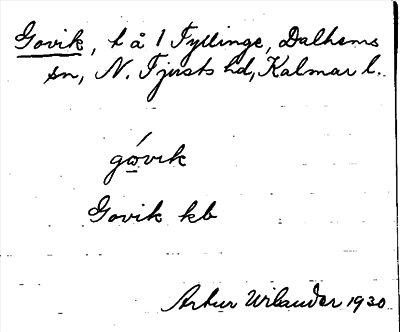 Govik, t å 1 Tyllinge, Dalhems
sn, N. Tjusts hd, Kalmar l.
gώvιk
Govik kb
Artur Wilander 1930